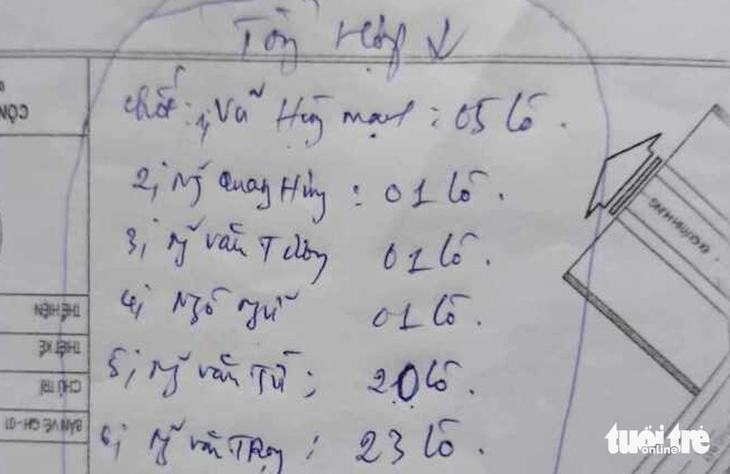 Tổng Hợp ↓
Chốt: 1, Vũ Hùng Mạnh : 05 lô.
2, Ng Quang Hùng : 01 lô.
3, Ng Văn 01 lô.
4, Ngô 01 lô.
5, Ng Văn Tứ : 20 lô.
6, Ng Văn Trọng : 23 lô.
CỘN
THỂ HIỆN
THIẾT KẾ
CHỦ TRÌ
BẢN VẼ GH-01
tuổi trẻ
online